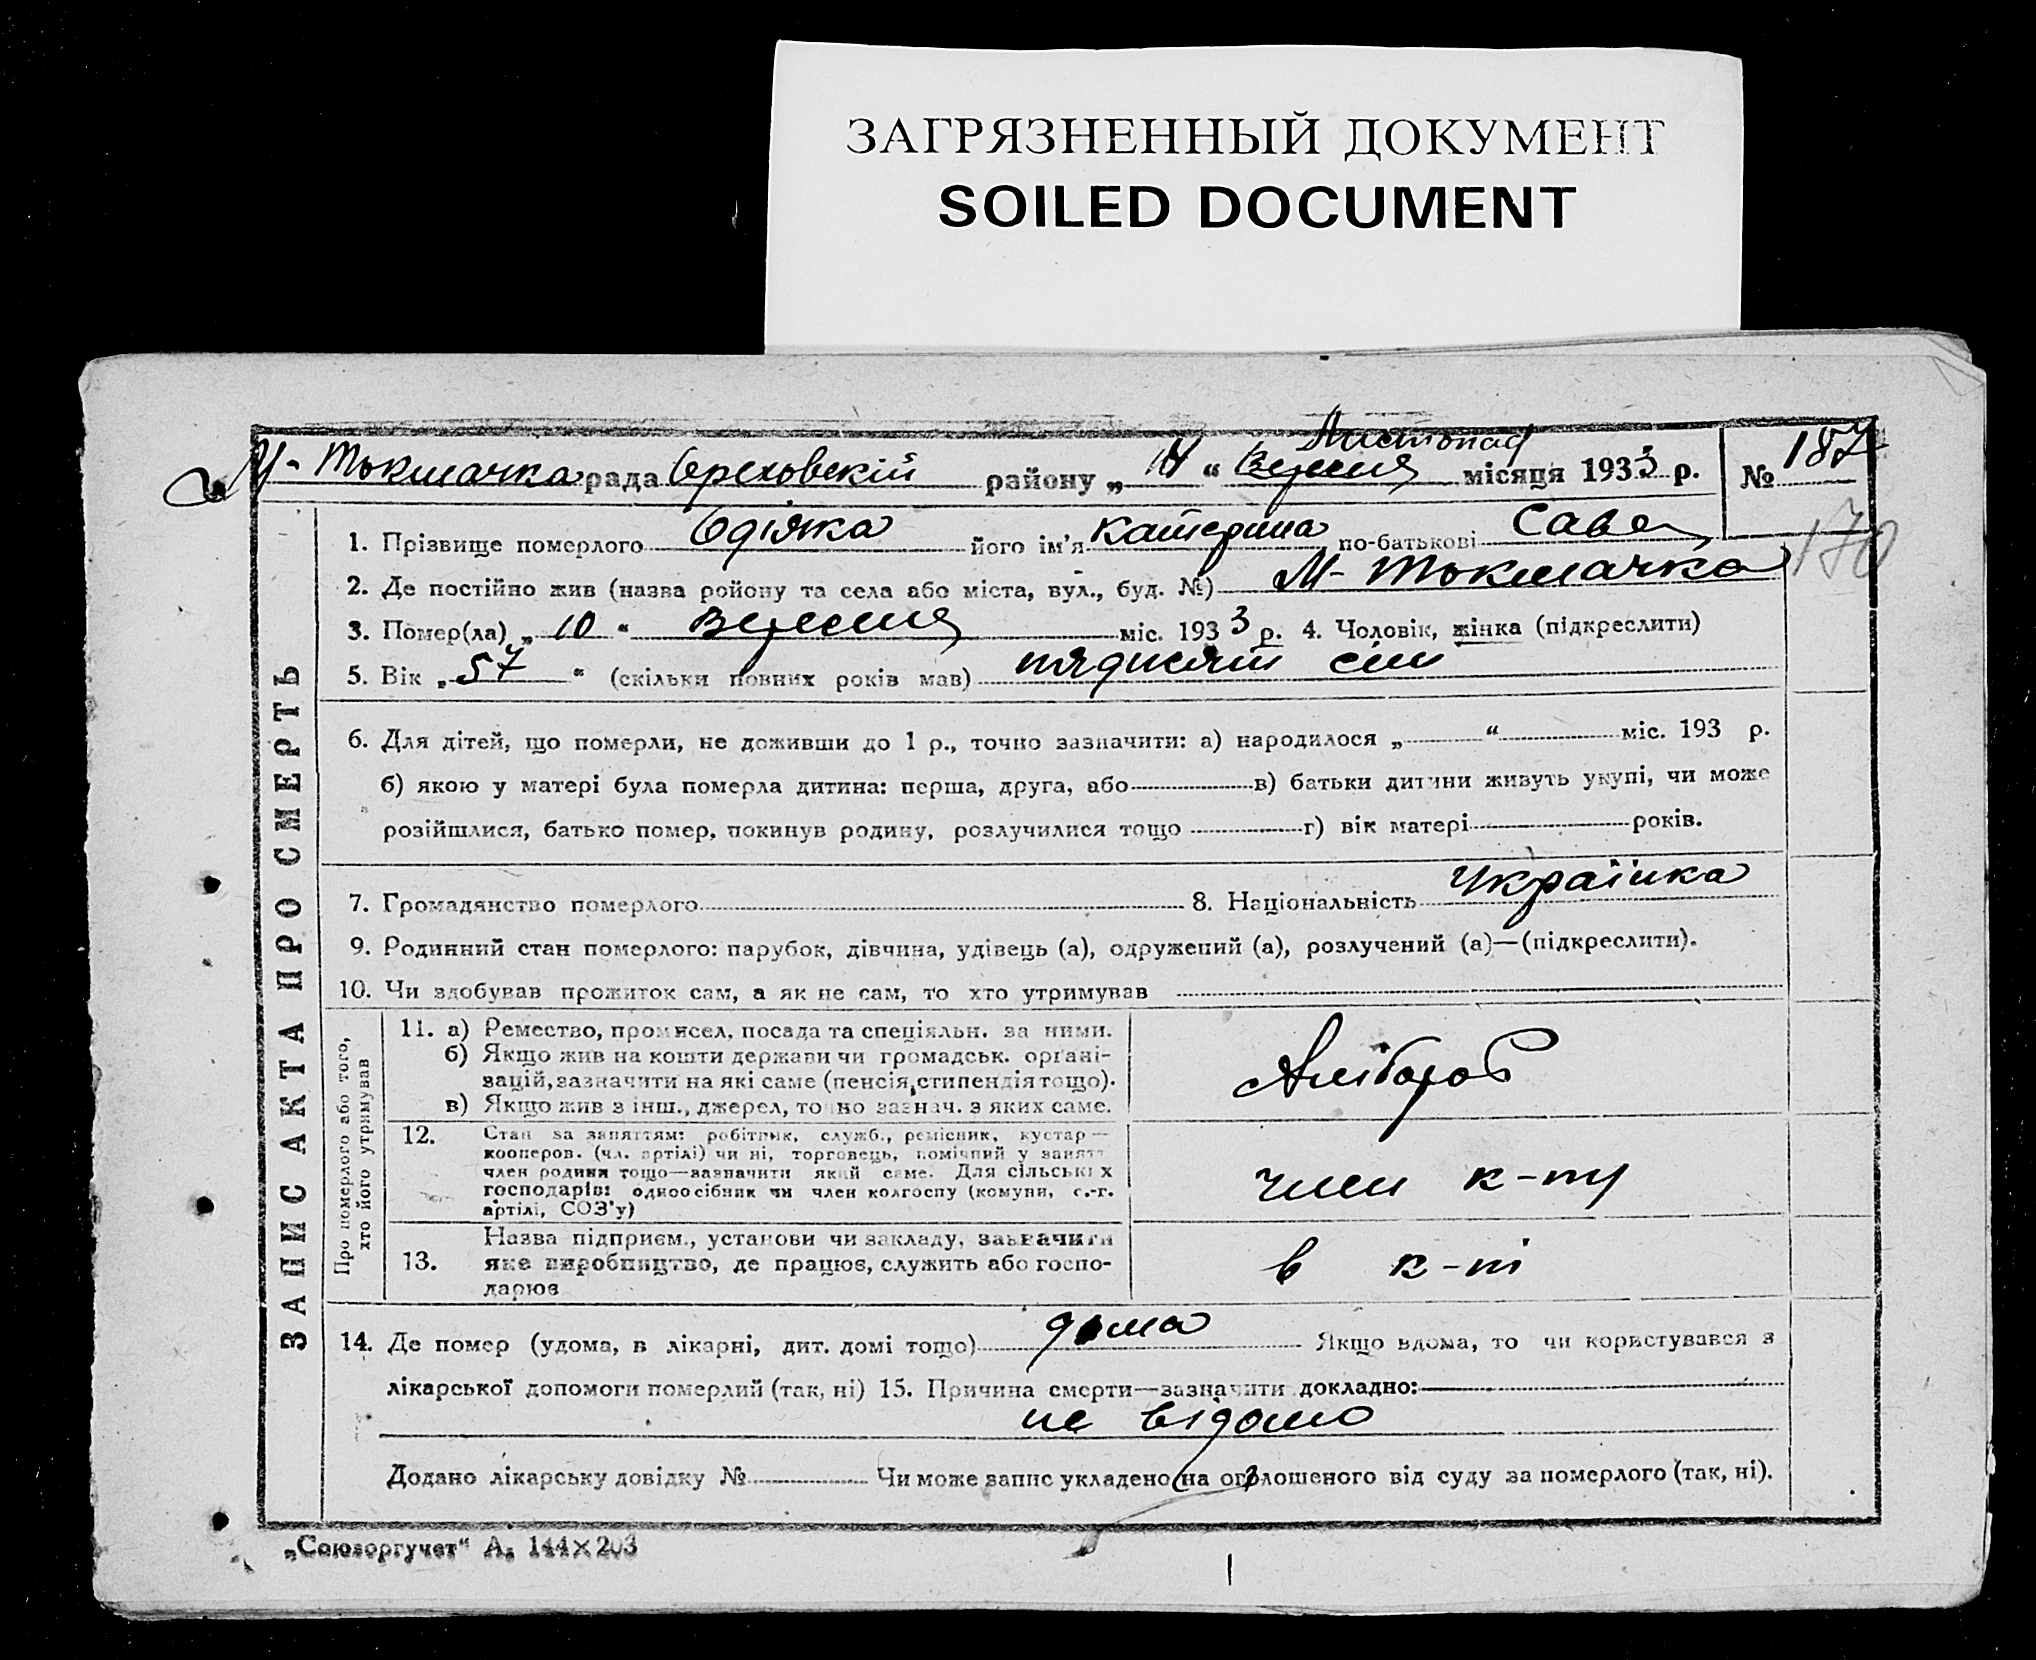 ЗАГРЯЗНЕННЫЙ ДОКУМЕНТ
SOILED DOCUMENT
Листопад
М-Токмачка рада Ореховскій району „ “ Вересня місяця 1933 р. № 187
170
ЗАПИС АКТА ПРО СМЕРТЬ
1. Прізвище померлого Одіяка його ім'я Катерина по-батькові Сава
2. Де постійно жив (назва ройону та села або міста, вул., буд. №) М-Токмачка
3. Помер(ла) „ 10 “ Вересня міс. 1933 р. 4. Чоловік, жінка (підкреслити)
5. Вік „ 57 “ (скільки повних років мав) пядисят сім
6. Для дітей, що померли, не доживши до 1 р., точно зазначити: а) народилося „ “ міс. 193 р.
б) якою у матері була померла дитина: перша, друга, або в) батьки дитини живуть укупі, чи може
розійшлися, батько помер, покинув родину, розлучилися тощо г) вік матері років.
7. Громадянство померлого 8. Національність Українка
9. Родинний стан померлого: парубок, дівчина, удівець (а), одружений (а), розлучений (а)—(підкреслити).
10. Чи здобував прожиток сам, а як не сам, то хто утримував
Про померлого або того,
хто його утримував
11. а) Ремество, промисел, посада та спеціяльн. за ними.
б) Якщо жив на кошти держави чи громадськ. органі-
зацій, зазначити на які саме (пенсія, стипендія тощо).
в) Якщо жив з інш., джерел, точно зазнач. з яких саме.
12. Стан за заняттям: робітник, служб., ремісник, кустар—
кооперов. (чл. артілі) чи ні, торговець, помічний у занятт
член родини тощо—зазначити який саме. Для сільських
господарів: одноосібник чи член колгоспу (комуни, с.-г.
артілі, СОЗ'у)
член к-ту
Назва підприєм., установи чи закладу, зазначити
13. яке виробництво, де працює, служить або госпо-
дарює
в к-ті
14. Де помер (удома, в лікарні, дит. домі тощо) дома Якщо вдома, то чи користувався з
лікарської допомоги померлий (так, ні) 15. Причина смерти—зазначити докладно:
не відомо
Додано лікарську довідку № Чи може запис укладено на оголошеного від суду за померлого (так, ні).
„Союзоргучет“ А₅ 144×203